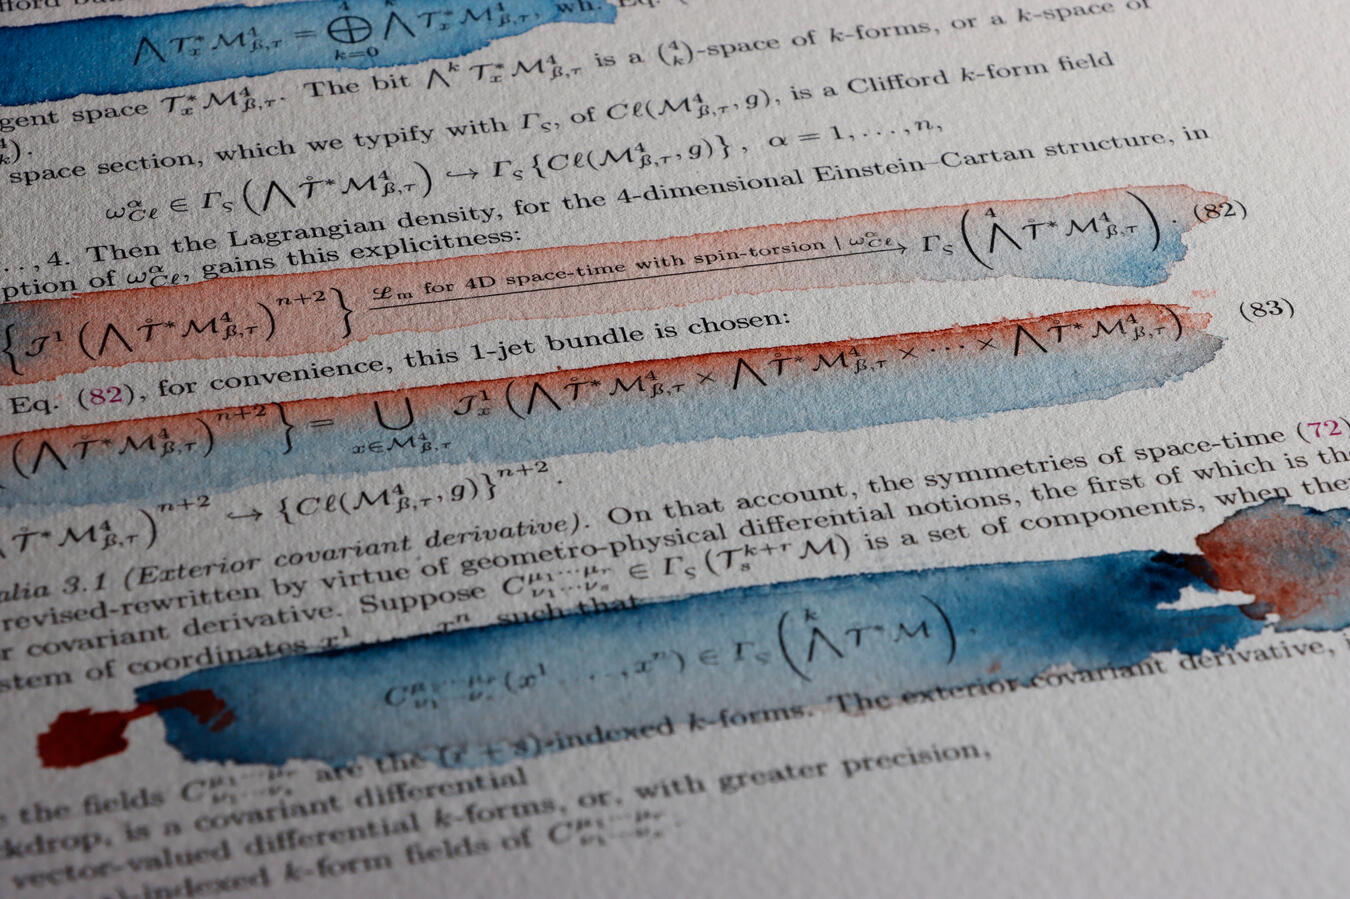 ⋀ T*ₓM⁴_{β,τ} = ⨁_{k=0}^{4} ⋀ᵏ T*ₓM⁴_{β,τ}, wh. Eq. (
gent space T*ₓM⁴_{β,τ}. The bit ⋀ᵏ T*ₓM⁴_{β,τ} is a (⁴ₖ)-space of k-forms, or a k-space of
⁴ₖ).
space section, which we typify with Γ_ς, of Cℓ(M⁴_{β,τ}, g), is a Clifford k-form field
ω^α_{Cℓ} ∈ Γ_ς(⋀ T̊*M⁴_{β,τ}) ↪ Γ_ς{Cℓ(M⁴_{β,τ}, g)}, α = 1, . . . , n,
. . , 4. Then the Lagrangian density, for the 4-dimensional Einstein–Cartan structure, in
ption of ω^α_{Cℓ}, gains this explicitness:
{J¹(⋀ T̊*M⁴_{β,τ})^{n+2}} ℒ_m for 4D space-time with spin-torsion | ω^α_{Cℓ} → Γ_ς(⋀⁴ T̊*M⁴_{β,τ}). (82)
Eq. (82), for convenience, this 1-jet bundle is chosen:
(⋀ T̊*M⁴_{β,τ})^{n+2}} = ⋃_{x∈M⁴_{β,τ}} J¹ₓ(⋀ T̊*M⁴_{β,τ} × ⋀ T̊*M⁴_{β,τ} × · · · × ⋀ T̊*M⁴_{β,τ}) (83)
⋀ T̊*M⁴_{β,τ})^{n+2} ↪ {Cℓ(M⁴_{β,τ}, g)}^{n+2}.
alia 3.1 (Exterior covariant derivative). On that account, the symmetries of space-time (72)
revised-rewritten by virtue of geometro-physical differential notions, the first of which is the
r covariant derivative. Suppose C^{μ₁···μᵣ}_{ν₁···νₛ} ∈ Γ_ς(T^{k+r}_s M) is a set of components, when the
stem of coordinates x¹, . . . , xⁿ, such that
C^{μ₁···μᵣ}_{ν₁···νₛ}(x¹, . . . , xⁿ) ∈ Γ_ς(⋀ᵏ T*M).
the fields C^{μ₁···μᵣ}_{ν₁···νₛ} are the (r + s)-indexed k-forms. The exterior covariant derivative, i
kdrop, is a covariant differential
vector-valued differential k-forms, or, with greater precision,
)-indexed k-form fields of C^{μ₁···μᵣ}_{ν₁···νₛ}.